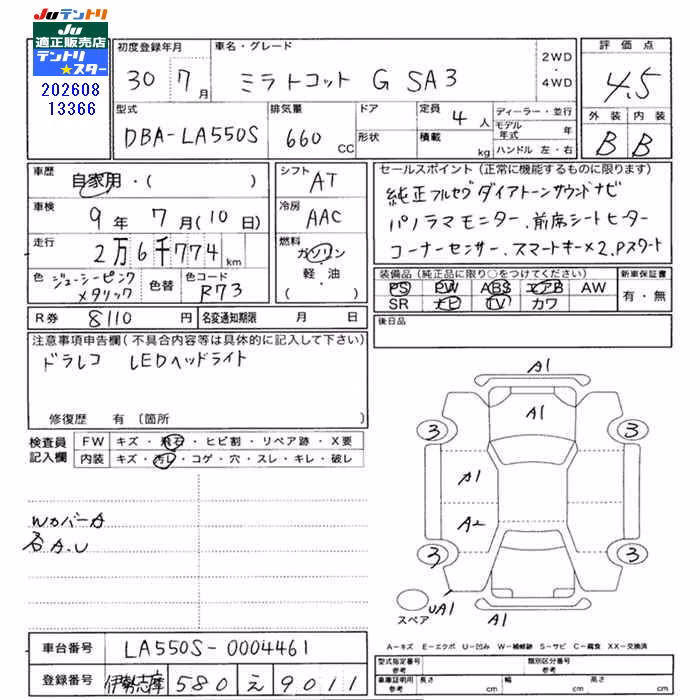 JUテントリ JUテントリ
JU
適正販売店
テントリ
スター
202608
13366
初度登録年月 車名・グレード 2WD・4WD 評価点
30 7月 ミラトコット G SA3 4.5
型式 排気量 ドア 定員 4人 ディーラー・並行 外装 内装
DBA-LA550S 660CC 形状 積載 kg モデル年式 年 B B
ハンドル 左・右
車歴 シフト セールスポイント(正常に機能するものに限ります)
自家用・( ) AT 純正フルセグダイアトーンサウンドナビ
車検 冷房 パノラマモニター、前席シートヒーター
9年7月(10日) AAC コーナーセンサー、スマートキー×2、Pスタート
走行 燃料
2万6千774km ガソリン・軽油・( )
色 色替 色コード 装備品(純正品に限り○をつけてください) 新車保証書
ジューシーピンクメタリック R73 PS PW ABS エアB AW 有・無
SR ナビ TV カワ
R券 8110円 名変通知期限 月 日 後日品
注意事項申告欄(不具合内容等は具体的に記入して下さい)
ドラレコ LEDヘッドライト
修復歴 有〔箇所 〕
検査員記入欄 FW キズ・飛石・ヒビ割・リペア跡・X要
内装 キズ・汚レ・コゲ・穴・スレ・キレ・破レ
WカバーA
各A.U
A1
A1
3 3
A1
A2
3 3
スペア UA1 A1
A-キズ E-エクボ U-凹み W-補修跡 S-サビ C-腐食 XX-交換済
車台番号 LA550S-0004461
型式指定番号 参考 類別区分番号 参考
登録番号 伊勢志摩 580 え 9011
車庫証明用 参考 長さ cm 幅 cm 高さ cm